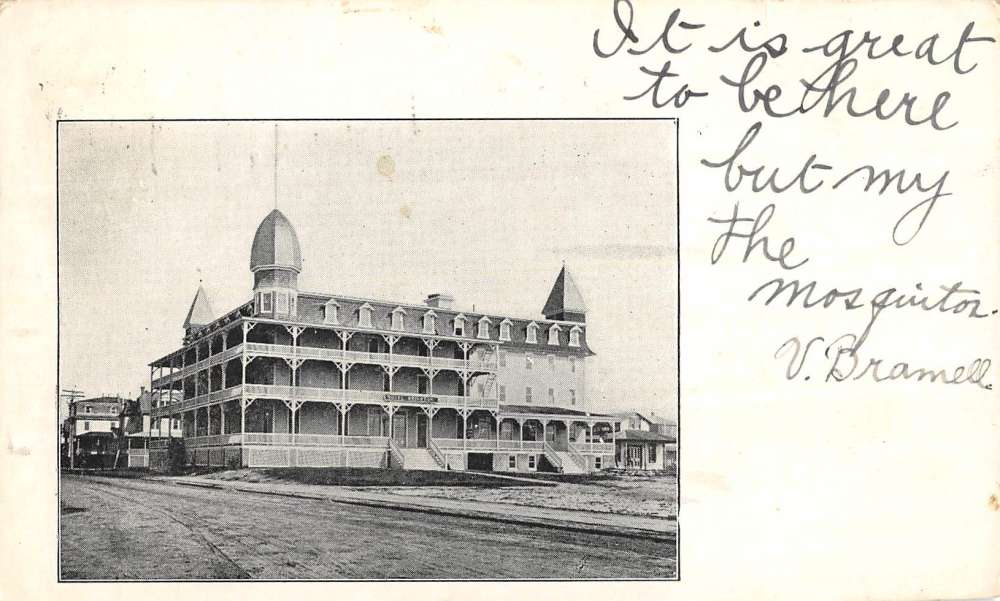 It is great
to be there
but my
the
Mosquitos.
V. Bramell.
HOTEL